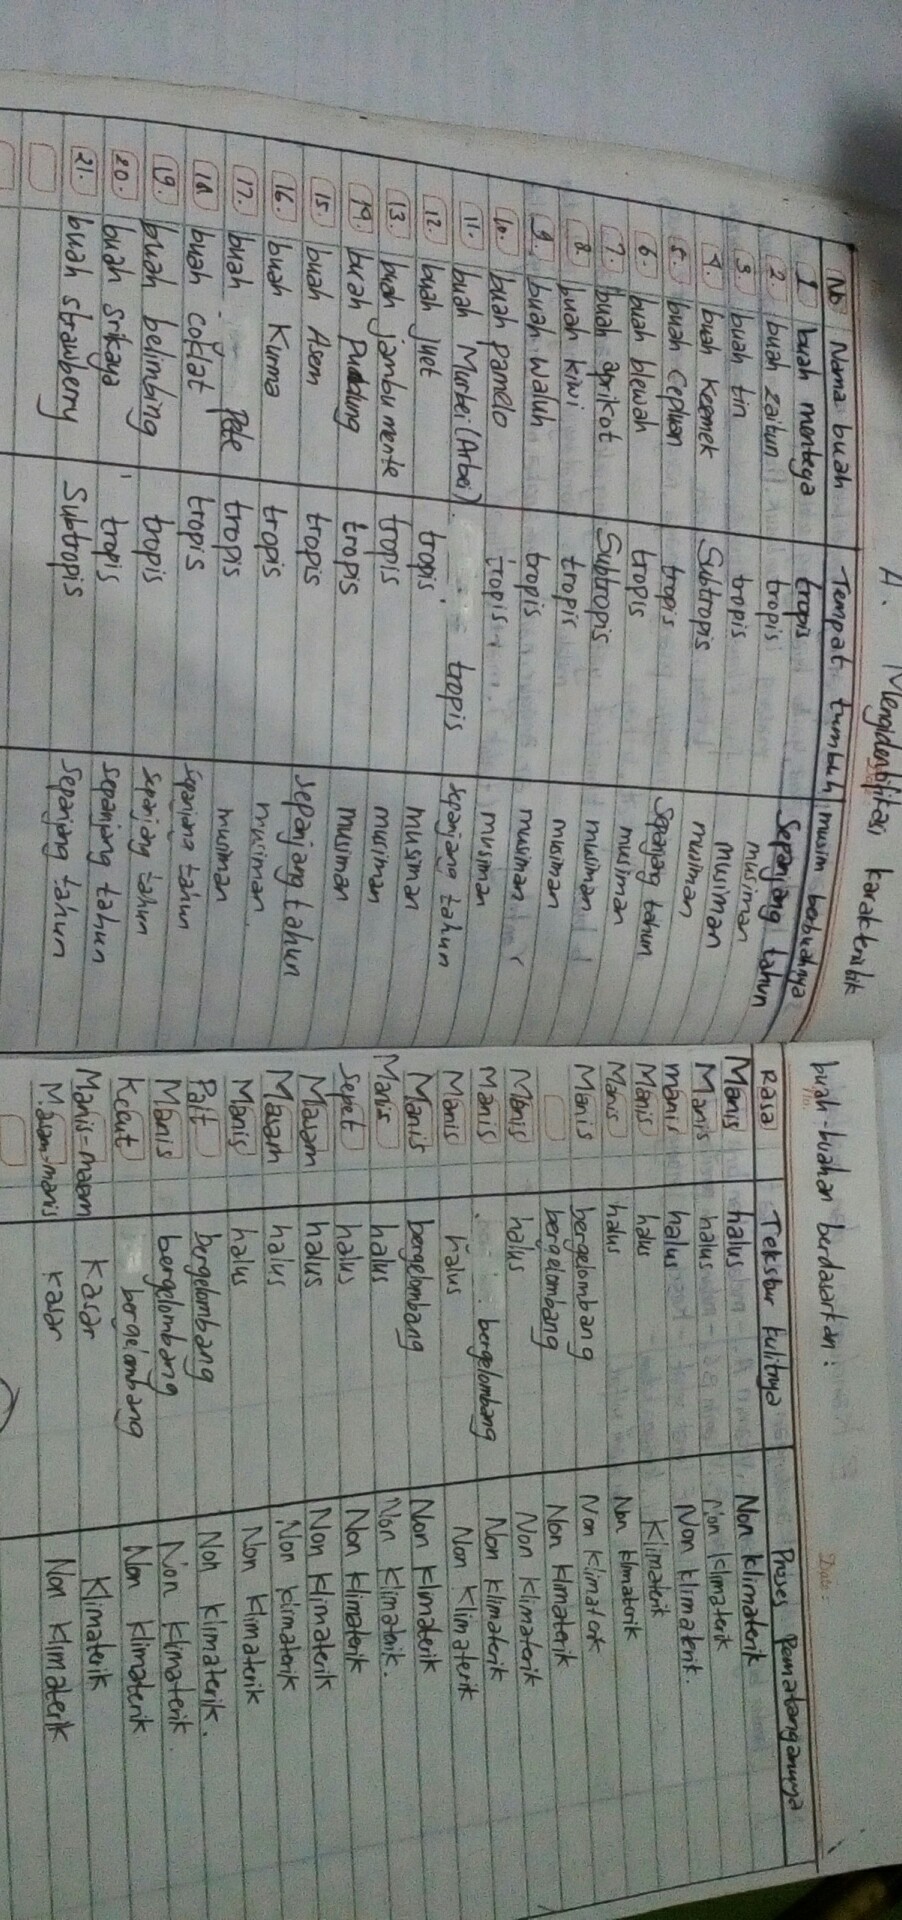 A. Mengidentifikasi karakteristik buah-buahan berdasarkan :
No Nama buah Tempat tumbuh musim berbuahnya Rasa Tekstur kulitnya Proses Pematangannya
1 buah mentega tropis Sepanjang tahun Manis halus Non klimaterik
2. buah zaitun tropis musiman Manis halus Non klimaterik
3. buah tin tropis musiman manis halus Non klimaterik.
4. buah Kesemek Subtropis musiman Manis halus Klimaterik
5. buah Ceplukan tropis Sepanjang tahun Manis halus Non klimaterik
6. buah blewah tropis musiman Manis bergelombang Non klimaterik
7. buah aprikot Subtropis musiman bergelombang Non klimaterik
8. buah kiwi tropis musiman Manis halus Non klimaterik
9. buah waluh tropis musiman Manis bergelombang Non klimaterik
10. buah pamelo tropis musiman Manis halus Non Klimaterik
11. buah Murbei (Arbei) tropis sepanjang tahun Manis bergelombang Non klimaterik
12. buah juet tropis musiman Manis halus Non klimaterik.
13. buah jambu mente tropis musiman Sepet halus Non klimaterik
14. buah Pundung tropis musiman Masam halus Non klimaterik
15. buah Asem tropis Sepanjang tahun Masam halus Non klimaterik
16. buah Kurma tropis musiman Manis halus Non klimaterik
17. buah Pete tropis musiman Pait bergelombang Non klimaterik.
18. buah coklat tropis sepanjang tahun Manis bergelombang Non klimaterik.
19. buah belimbing tropis sepanjang tahun Kecut bergelombang Non klimaterik
20. buah Srikaya tropis sepanjang tahun Manis-masam kasar Klimaterik
21. buah strawbery Subtropis sepanjang tahun Masam-manis kasar Non klimaterik